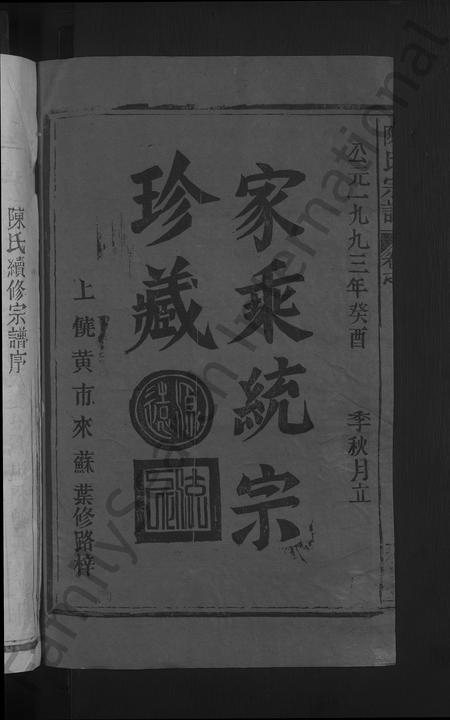 陳氏宗譜
公元一九九三年癸酉 季秋月立
家乘統宗
珍藏
源遠
流長
上饒黄市來蘇葉修路梓
陳氏續修宗譜序
FamilySearch International